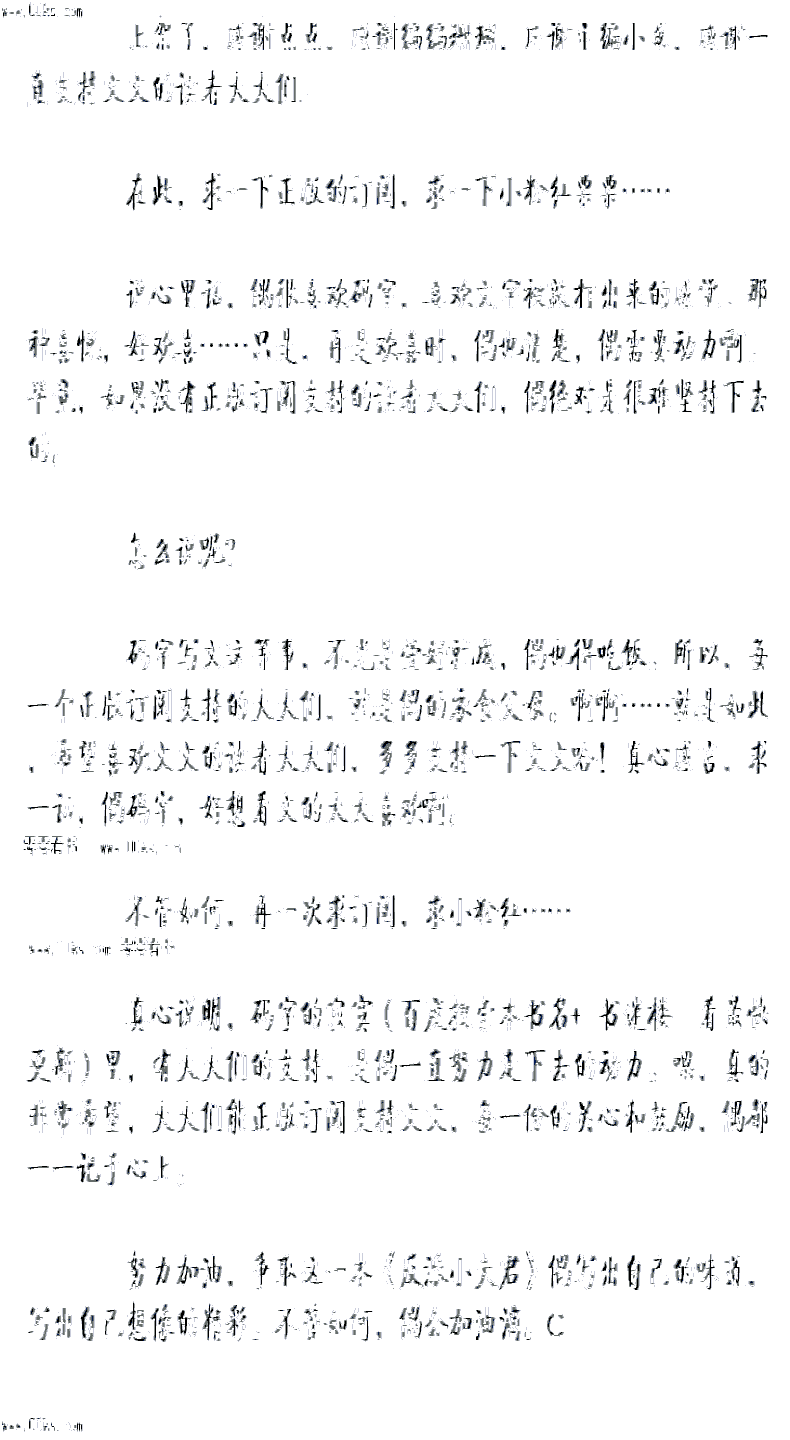 www.00ks.com
上架了，感谢点点，感谢编编珊珊，感谢主编小妖，感谢一
直支持文文的读者大大们。
在此，求一下正版的订阅，求一下小粉红票票……
说心里话，偶很喜欢码字，喜欢文字被敲打出来的感觉，那
种喜悦，好欢喜……只是，再是欢喜时，偶也清楚，偶需要动力啊。
毕竟，如果没有正版订阅支持的读者大大们，偶绝对是很难坚持下去
的。
怎么说呢？
码字写文这等事，不光是爱好就成，偶也得吃饭。所以，每
一个正版订阅支持的大大们，就是偶的衣食父母。啊啊……就是如此
，希望喜欢文文的读者大大们，多多支持一下文文咯！真心感言，求
一词，偶码字，好想看文的大大喜欢啊。
零零看书 www.00ks.com
不管如何，再一次求订阅，求小粉红……
www.00ks.com 零零看书
真心说明，码字的寂寞（百度搜索本书名+ 书迷楼 看最快
更新）里，有大大们的支持，是偶一直努力走下去的动力。嗯，真的
非常希望，大大们能正版订阅支持文文，每一份的关心和鼓励，偶都
一一记于心上。
努力加油，争取这一本《反派小夫君》偶写出自己的味道，
写出自己想像的精彩。不管如何，偶会加油滴。C
www.00ks.com